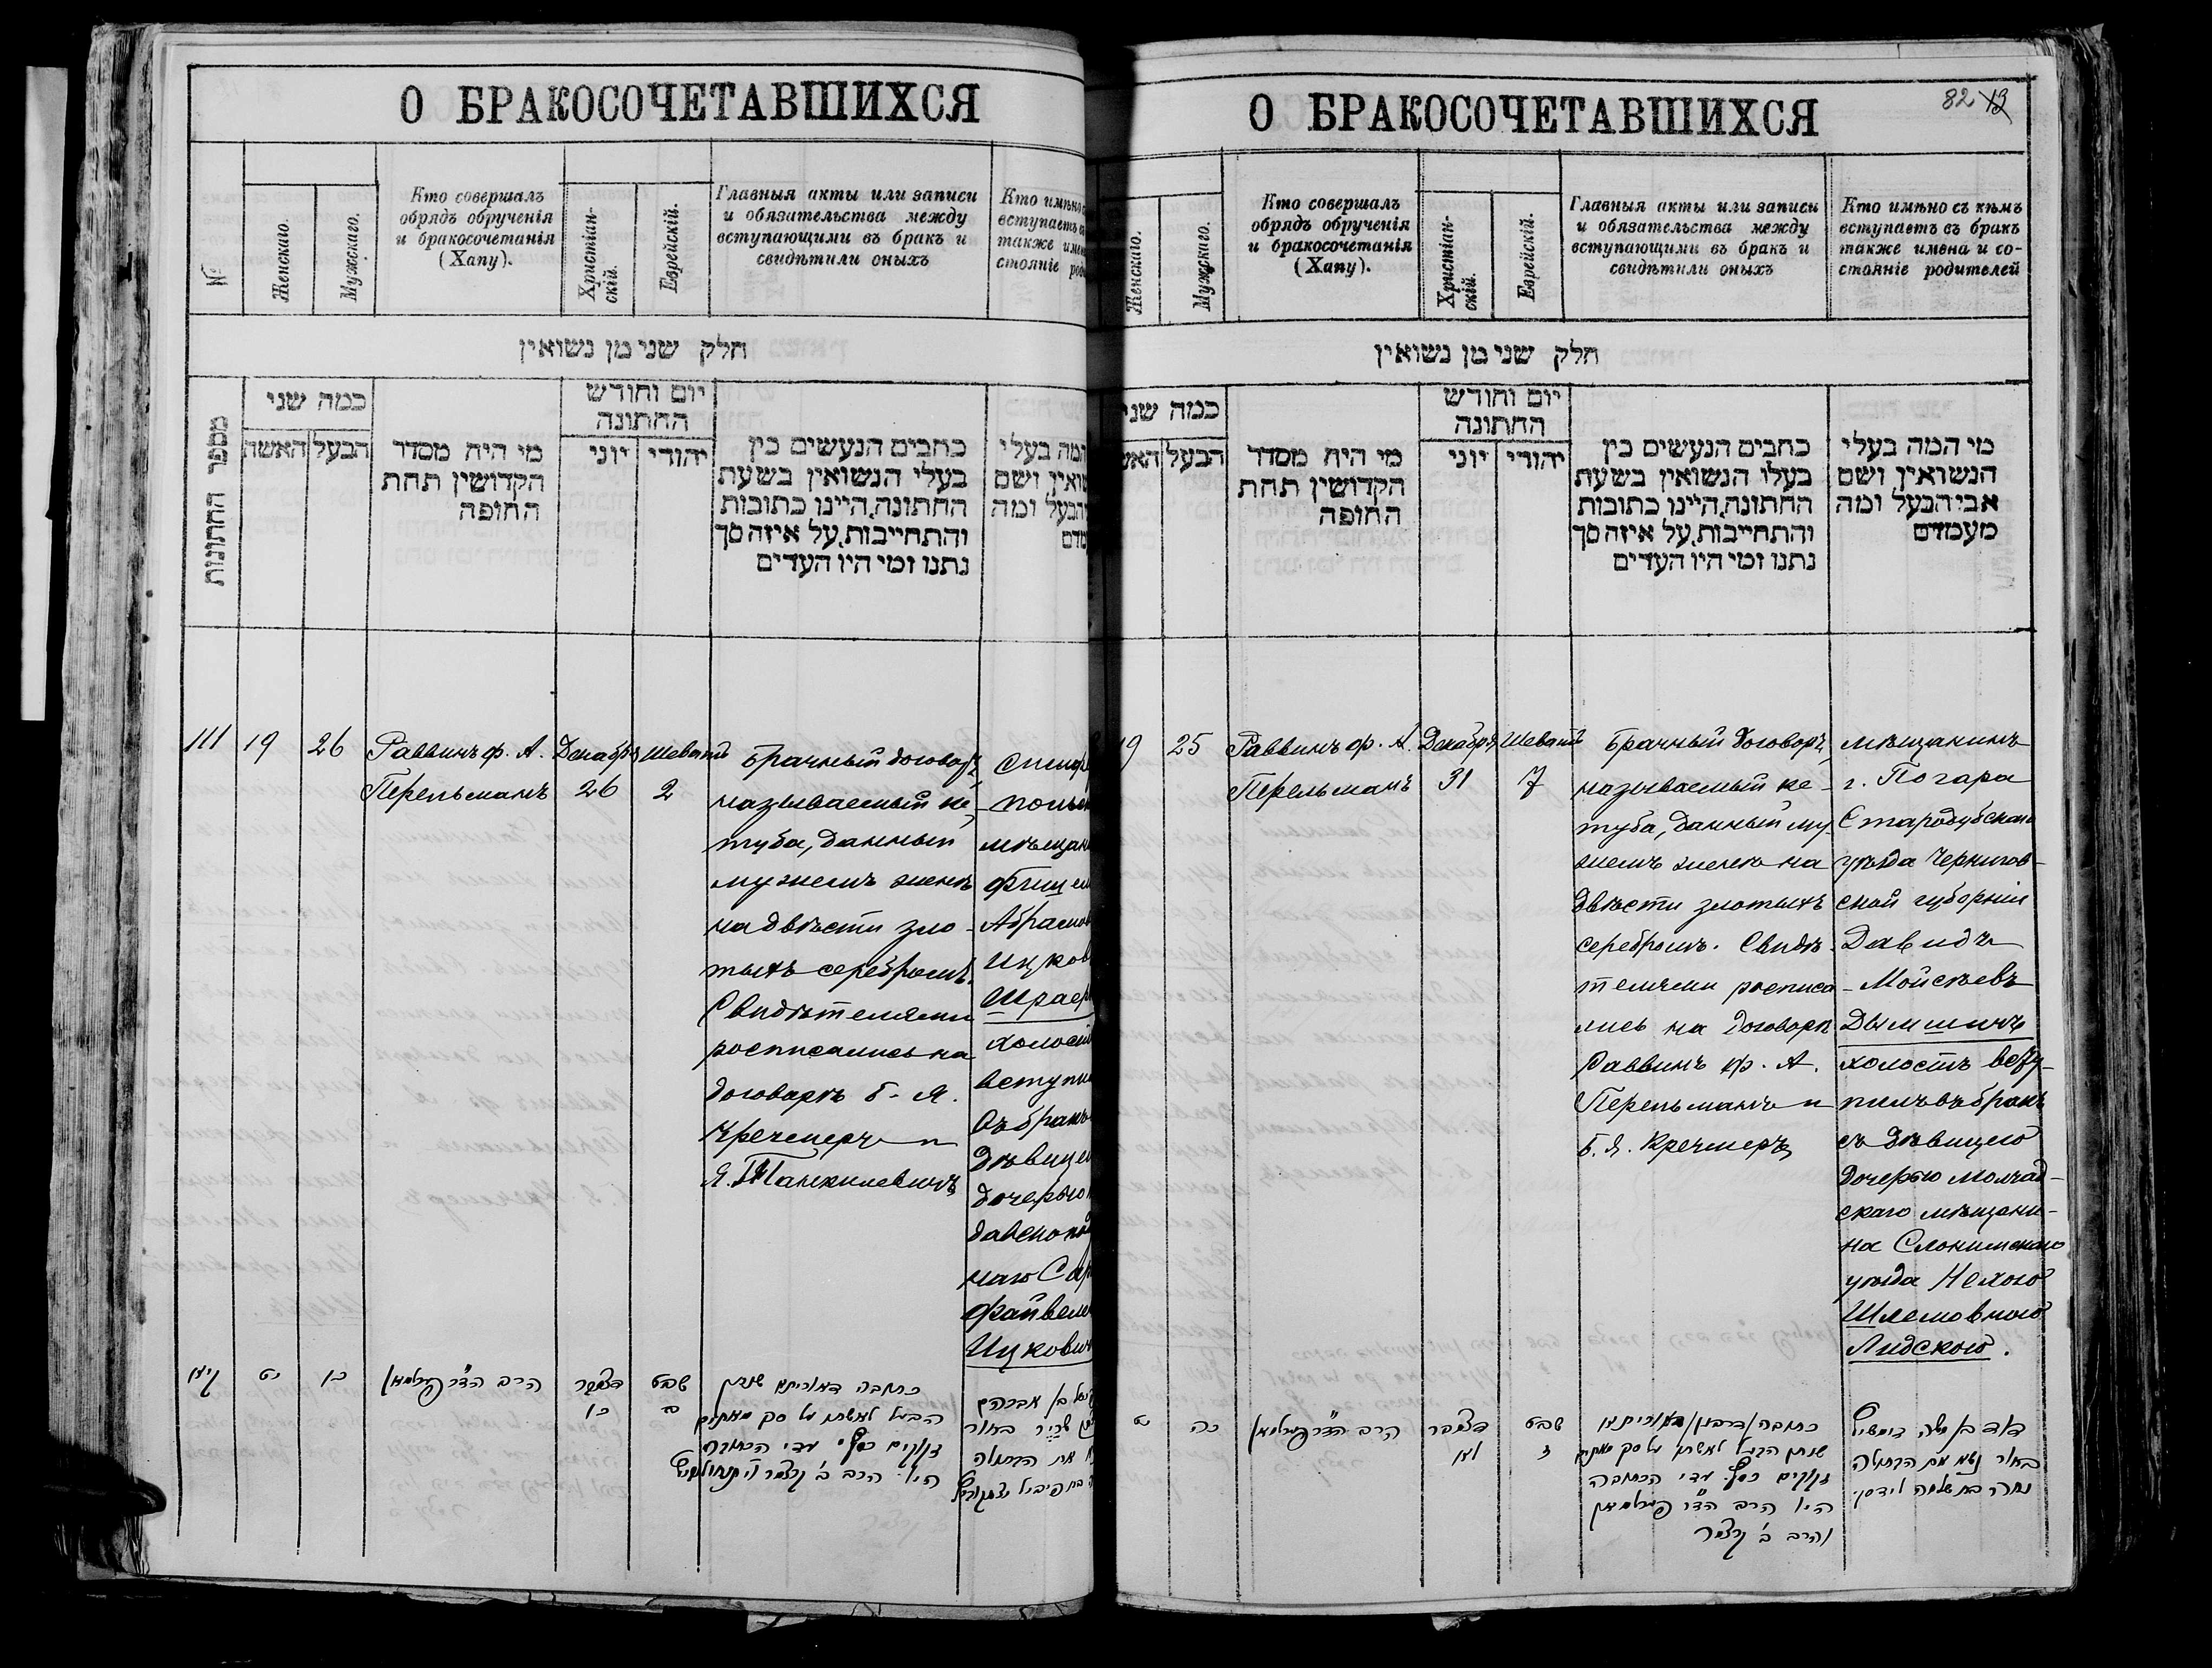 О БРАКОСОЧЕТАВШИХСЯ
№
Женскаго.
Мужскаго.
Кто совершалъ
обрядъ обрученія
и бракосочетанія
(Хапу).
Христіан-
скій.
Еврейскій.
Главныя акты или записи
и обязательства между
вступающими въ бракъ и
свидѣтили оныхъ
Кто имѣно
вступаетъ
также имен
стояніе род
חלק שני מן נשואין
מספר החתונות
כמה שני
האשה
הבעל
מי היה מסדר
הקדושין תחת
החופה
יום וחודש
החתונה
יוני
יהודי
כתבים הנעשים בין
בעלי הנשואין בשעת
החתונה, היינו כתובות
והתחייבות, על איזה סך
נתנו ומי היו העדים
המה בעלי
שואין ושם
הבעל ומה
מדם
111
19
26
Раввинъ ф. А.
Перельманъ
Декабря
26
Шеватъ
2
Брачный договоръ,
называемый ке-
туба, данный
мужемъ женѣ
на двѣсти зло-
тыхъ серебромъ.
Свидѣтелями
росписались на
договорѣ Б. Я.
Кречмеръ и
Я. Танхилевичъ
мѣщан
Абрамов
Ицков
Шраер
холост
вступи
въ бракъ
дѣвице
дочерью
наго Сар
Файвел
Ицкович
קיא
יט
כו
הרב הד"ר פערלמאן
דצמבר
כו
שבט
ב
כתובה דאוריתא שנתן
הבעל לאשתו על סך מאתים
זקוקים כסף. עדי הכתובה
היו הרב ב' קרצמר
בן אברהם
בחור
את הבתולה
О БРАКОСОЧЕТАВШИХСЯ
82 13
Женскаго.
Мужскаго.
Кто совершалъ
обрядъ обрученія
и бракосочетанія
(Хапу).
Христіан-
скій.
Еврейскій.
Главныя акты или записи
и обязательства между
вступающими въ бракъ и
свидѣтили оныхъ
Кто имѣно съ кѣмъ
вступаетъ въ бракъ
также имена и со-
стояніе родителей
חלק שני מן נשואין
כמה שני
האש
הבעל
מי היה מסדר
הקדושין תחת
החופה
יום וחודש
החתונה
יוני
יהודי
כתבים הנעשים בין
בעלי הנשואין בשעת
החתונה, היינו כתובות
והתחייבות, על איזה סך
נתנו ומי היו העדים
מי המה בעלי
הנשואין ושם
אבי הבעל ומה
מעמדם
19
25
Раввинъ ф. А.
Перельманъ
Декабря
31
Шеватъ
7
Брачный договоръ,
называемый ке-
туба, данный му-
жемъ женѣ на
двѣсти злотыхъ
серебромъ. Свидѣ-
телями росписа-
лись на договорѣ
Раввинъ ф. А.
Перельманъ и
Б. Я. Кречмеръ
мѣщанинъ
г. Погара
Стародубскаго
уѣзда Чернигов-
ской губерніи
Давидъ
Мойсѣевъ
Дымшицъ
холостъ всту-
пилъ въ бракъ
съ дѣвицею
дочерью молчад-
скаго мѣщани-
на Слонимскаго
уѣзда Нехою
Шлемовною
Лидскою.
ט
כה
הרב הד"ר פערלמאן
דצמבר
לא
שבט
ז
כתובה
שנתן הבעל לאשתו על סך מאתים
זקוקים כסף. עדי הכתובה
היו הרב הד"ר פערלמאן
והרב ב' קרצמר
דוד בן משה דימשיץ
בחור נשא את הבתולה
נחה בת שלמה לידסקי.